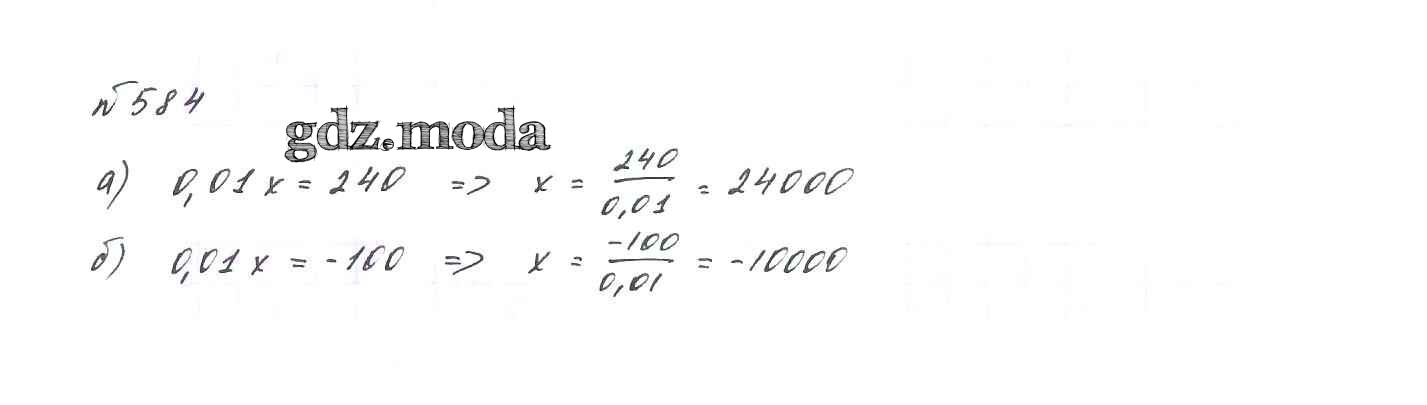 №584
gdz.moda
а) 0,01x = 240 => x = 240/0,01 = 24000
б) 0,01x = -100 => x = -100/0,01 = -10000